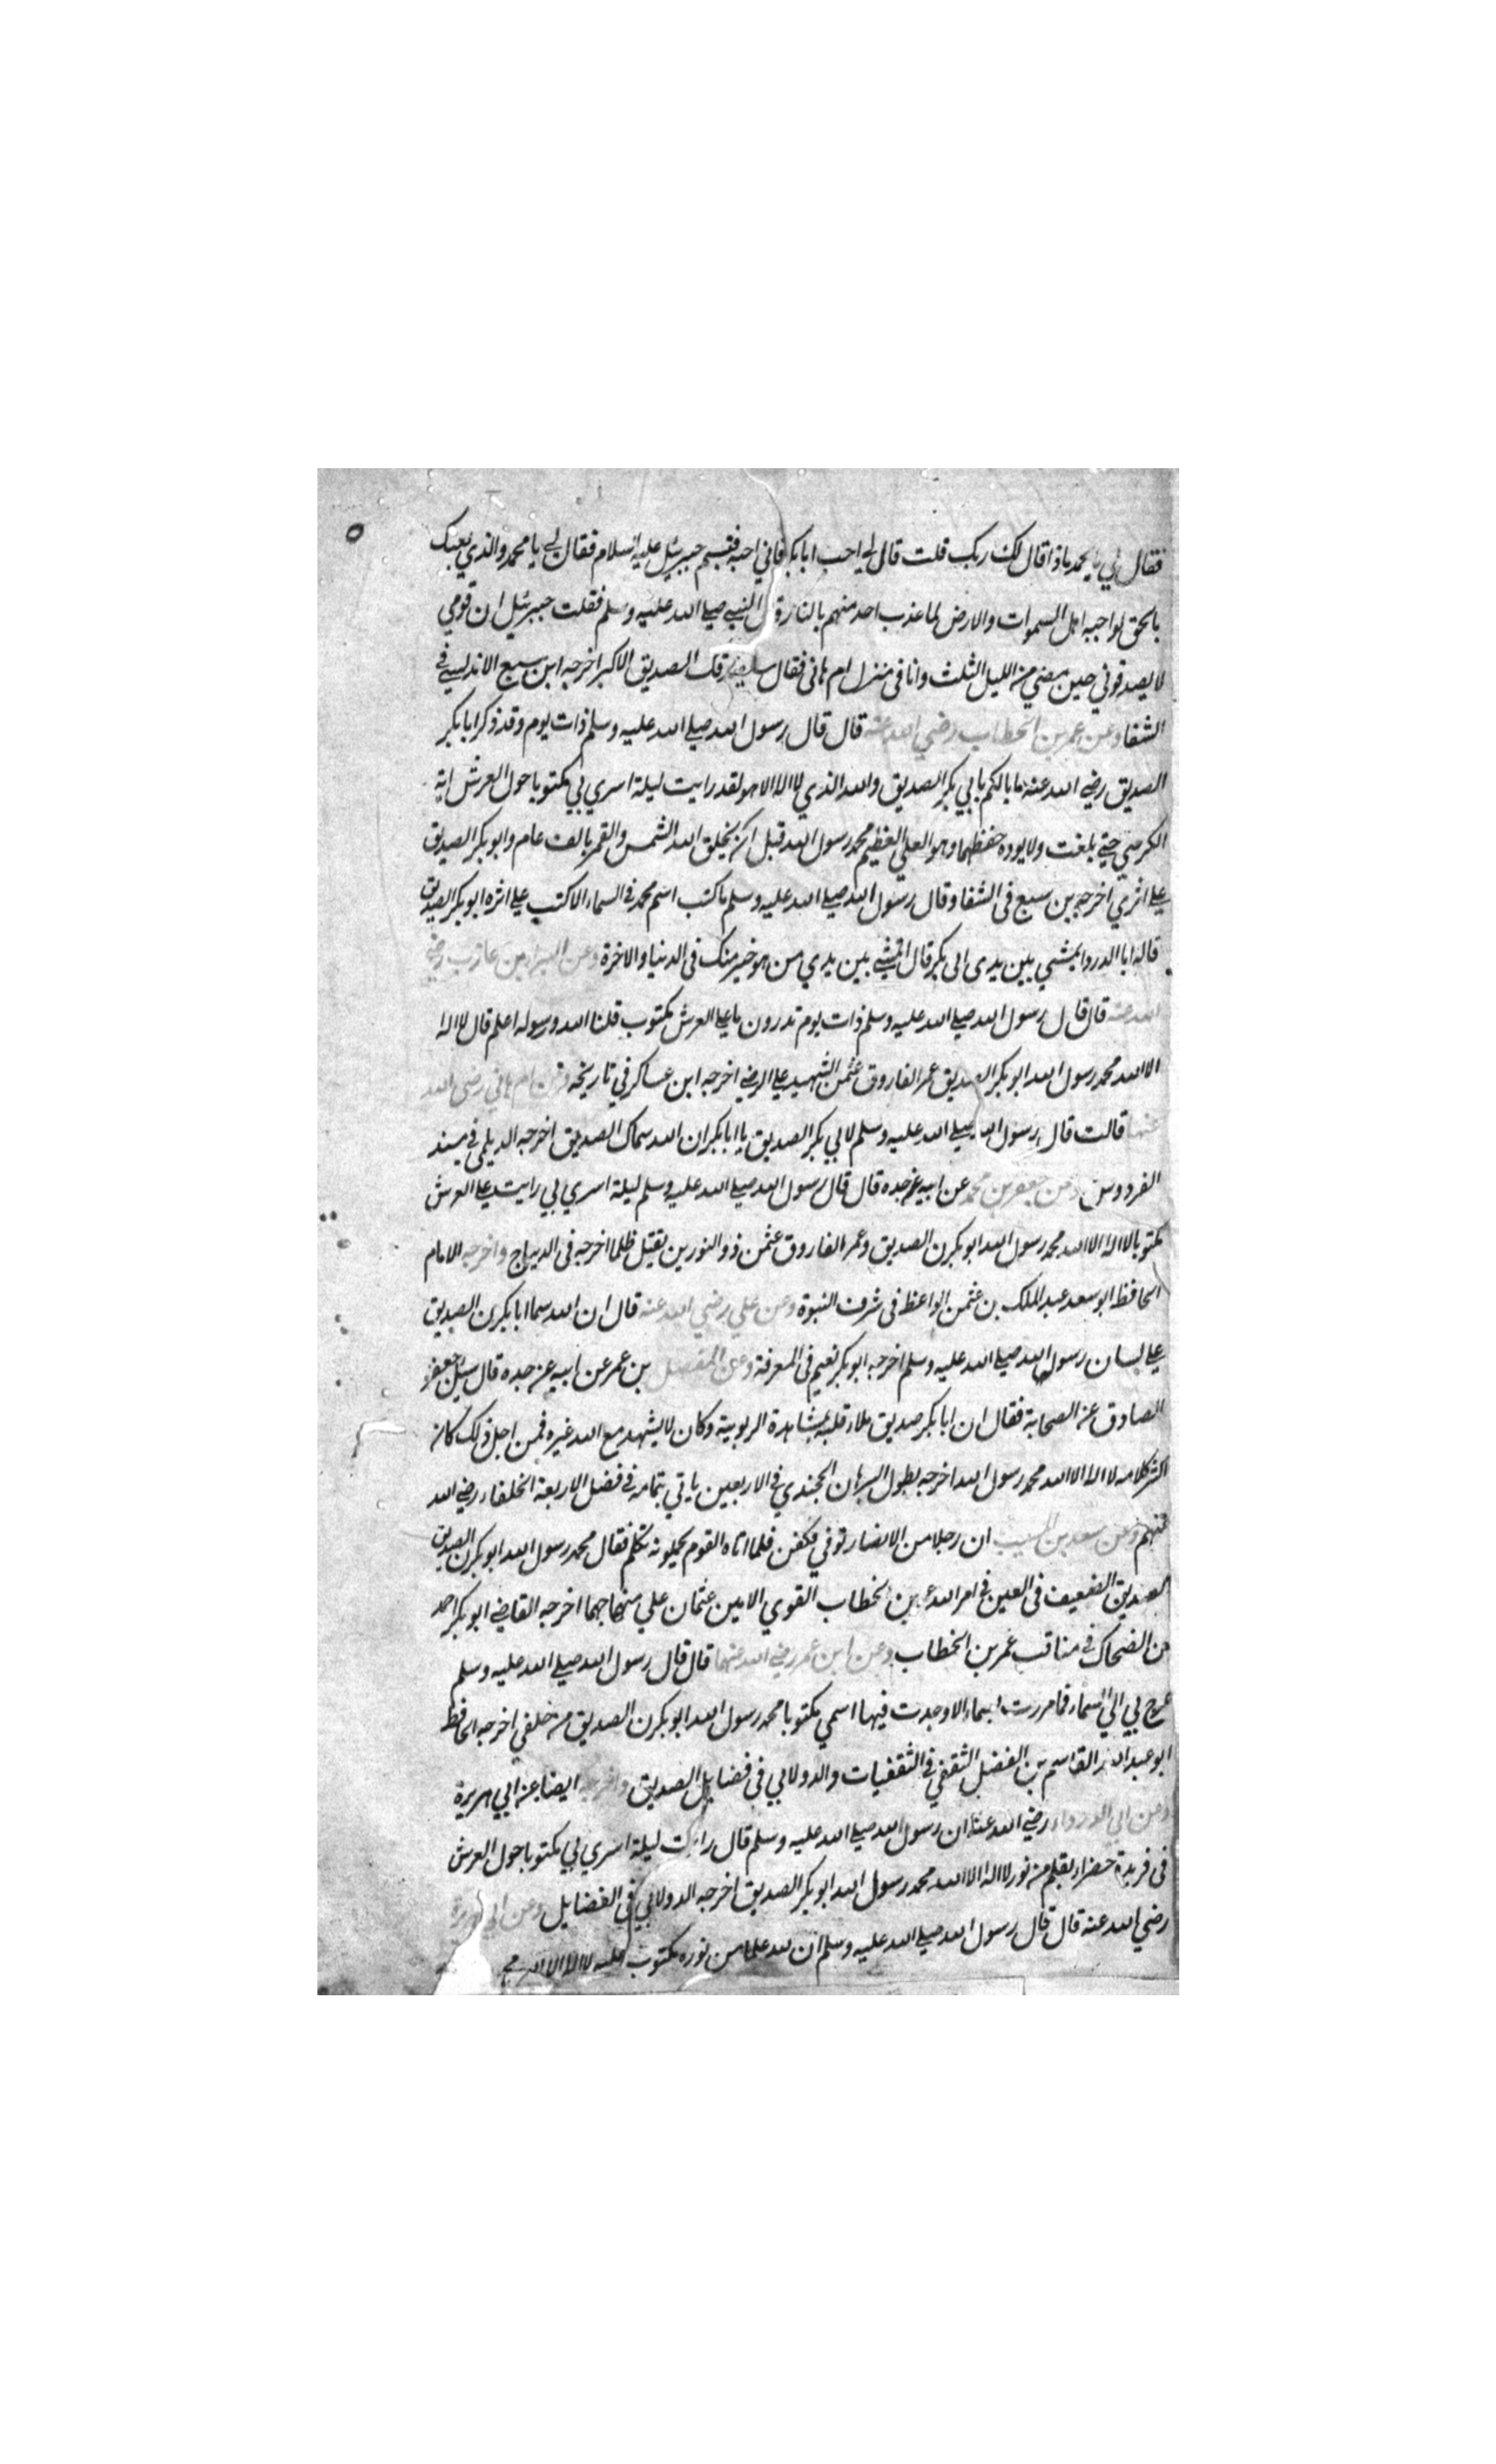 ٥
فقال لي يا محمد ماذا قال لك ربك قلت قال لي احب ابابكر فاني احبه فتبسم جبرئيل عليه السلام فقال لي يا محمد والذي بعثك
بالحق لواحبه اهل السموات والارض لما عذب احد منهم بالنار قال النبي صلي الله عليه وسلم فقلت جبرئيل ان قومي
لا يصدقوني حين مضي من الليل الثلث وانا في منزل ام هاني فقال الصديق الاكبر اخرجه ابن سبع الاندلسي في
الشفا وعن عمر بن الخطاب رضي الله عنه قال قال رسول الله صلي الله عليه وسلم ذات يوم وقد ذكر ابا بكر
الصديق رضي الله عنه ما بالكم بابي بكر الصديق والله الذي لا اله الا هو لقد رايت ليلة اسري بي مكتوبا حول العرش اية
الكرسي حتي بلغت ولا يوده حفظهما وهو العلي العظيم محمد رسول الله قبل ان يخلق الله الشمس والقمر بالف عام وابو بكر الصديق
علي اثري اخرجه بن سبع في الشفا وقال رسول الله صلي الله عليه وسلم ما كتب اسم محمد في السماء الا كتب علي اثره ابو بكر الصديق
قاله ابا الدردا يمشي بين يدى ابى بكر قال اتمشي بين يدي من هو خير منك في الدنيا والاخرة وعن البراء بن عازب رضي
الله عنه قال قال رسول الله صلي الله عليه وسلم ذات يوم تدرون ما علي العرش مكتوب قلنا الله ورسوله اعلم قال لا اله
الا الله محمد رسول الله ابو بكر الصديق عمر الفاروق عثمن الشهيد علي الرضي اخرجه ابن عساكر في تاريخه وعن ام هاني رضي الله
عنها قالت قال رسول الله صلي الله عليه وسلم لابي بكر الصديق يا ابا بكر ان الله سماك الصديق اخرجه الديلمي في مسند
الفردوس وعن جعفر بن محمد عن ابيه عن جده قال قال رسول الله صلي الله عليه وسلم ليلة اسري بي رايت علي العرش
مكتوبا لا اله الا الله محمد رسول الله ابو بكرن الصديق وعمر الفاروق عثمن ذو النورين يقتل ظلما اخرجه في الديباج واخرجه الامام
الحافظ ابو سعد عبد الملك بن عثمن الواعظ في شرف النبوة وعن علي رضي الله عنه قال ان الله سما ابا بكرن الصديق
علي لسان رسول الله صلي الله عليه وسلم اخرجه ابو بكر نعيم في المعرفة وعن المفضل بن عمر عن ابيه عن جده قال سيل جعفر
الصادق عن الصحابة فقال ان ابا بكر صديق ملاء قلبه بمشاهدة الربوبية وكان لا يشهد مع الله غيره فمن اجل ذلك كان
اكثر كلامه لا اله الا الله محمد رسول الله اخرجه بطول البرهان الجندي في الاربعين ياتي بتمامه في فضل الاربعة الخلفاء رضي الله
عنهم وعن سعد بن المسيب ان رجلا من الانصار توفي فكفن فلما اتاه القوم يحملونه تكلم فقال محمد رسول الله ابو بكرن الصديق
الصديق الضعيف في العين في امر الله عمر بن الخطاب القوي الامين عثمان علي منهاجهما اخرجه القاضي ابو بكر احمد
بن الضحاك في مناقب عمر بن الخطاب وعن ابن عمر رضي الله عنهما قال قال رسول الله صلي الله عليه وسلم
عرج بي الي السماء فما مررت بسماء الا وجدت فيها اسمي مكتوبا محمد رسول الله ابو بكرن الصديق من خلفي اخرجه الحافظ
ابو عبد الله القاسم بن الفضل الثقفي في الثقفيات والدولابي في فضايل الصديق واخرجه ايضا عن ابي هريرة
وعن ابي الدرداء رضي الله عنه ان رسول الله صلي الله عليه وسلم قال رايت ليلة اسري بي مكتوبا حول العرش
في فريدة خضراء بقلم من نور لا اله الا الله محمد رسول الله ابو بكر الصديق اخرجه الدولابي في الفضايل وعن ابي هريرة
رضي الله عنه قال قال رسول الله صلي الله عليه وسلم ان لله علما من نوره مكتوب عليه لا اله الا الله